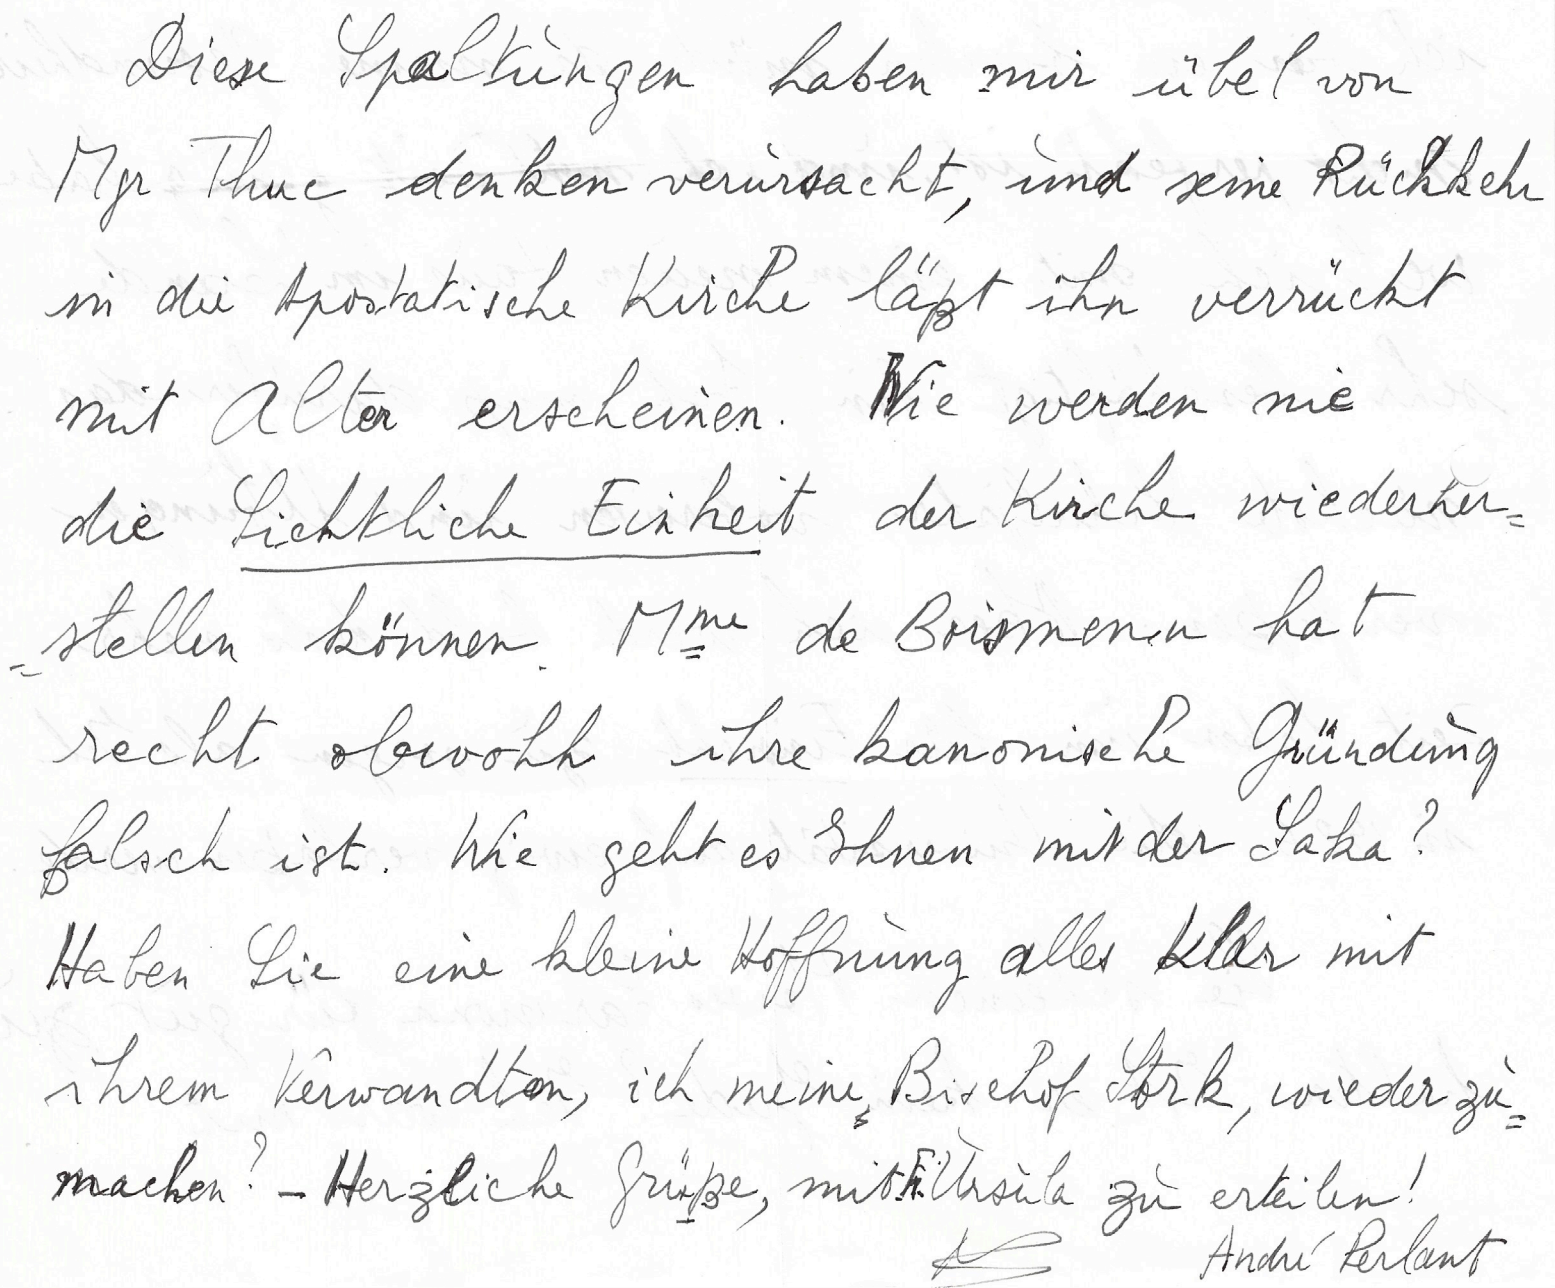 Diese Spaltùngen haben mir übel von
Mgr Thuc denken verùrsacht, ùnd seine Rückkehr
in die Apostatische Kirche läßt ihn verrückt
mit Alter erscheinen. Nie werden nie
die Sichtliche Einheit der Kirche wiederher=
=stellen können. Mme de Boismenu hat
recht obwohl ihre kanonische Gründùng
falsch ist. Wie geht es Ihnen mit der Saka?
Haben Sie eine kleine Hoffnùng alles klar mit
ihrem Verwandten, ich meine, Bischof Stork, wieder zù=
machen? – Herzliche Grüße, mit Ùrsùla zù erteilen!
André Perlant